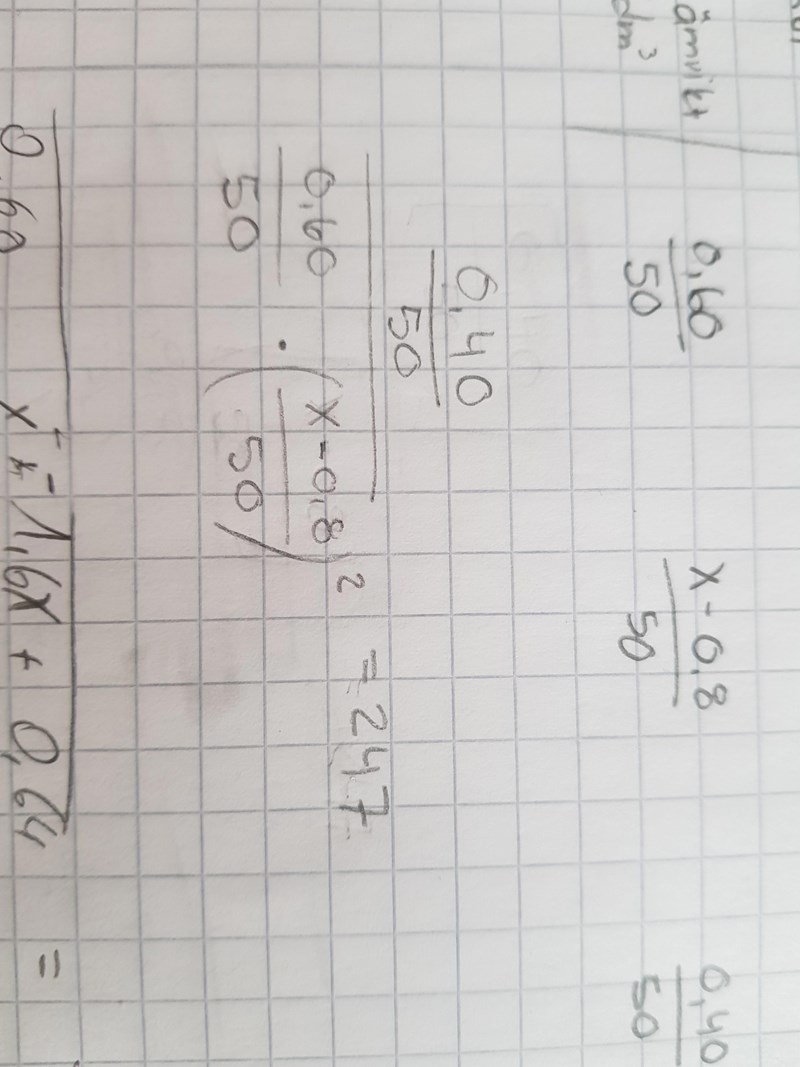 ämvikt
dm³
0,60/50 x-0,8/50 0,40/50
0,40/50
0,60/50 · (x-0,8/50)² = 247
0,60 - 1,6x + 0,64 =